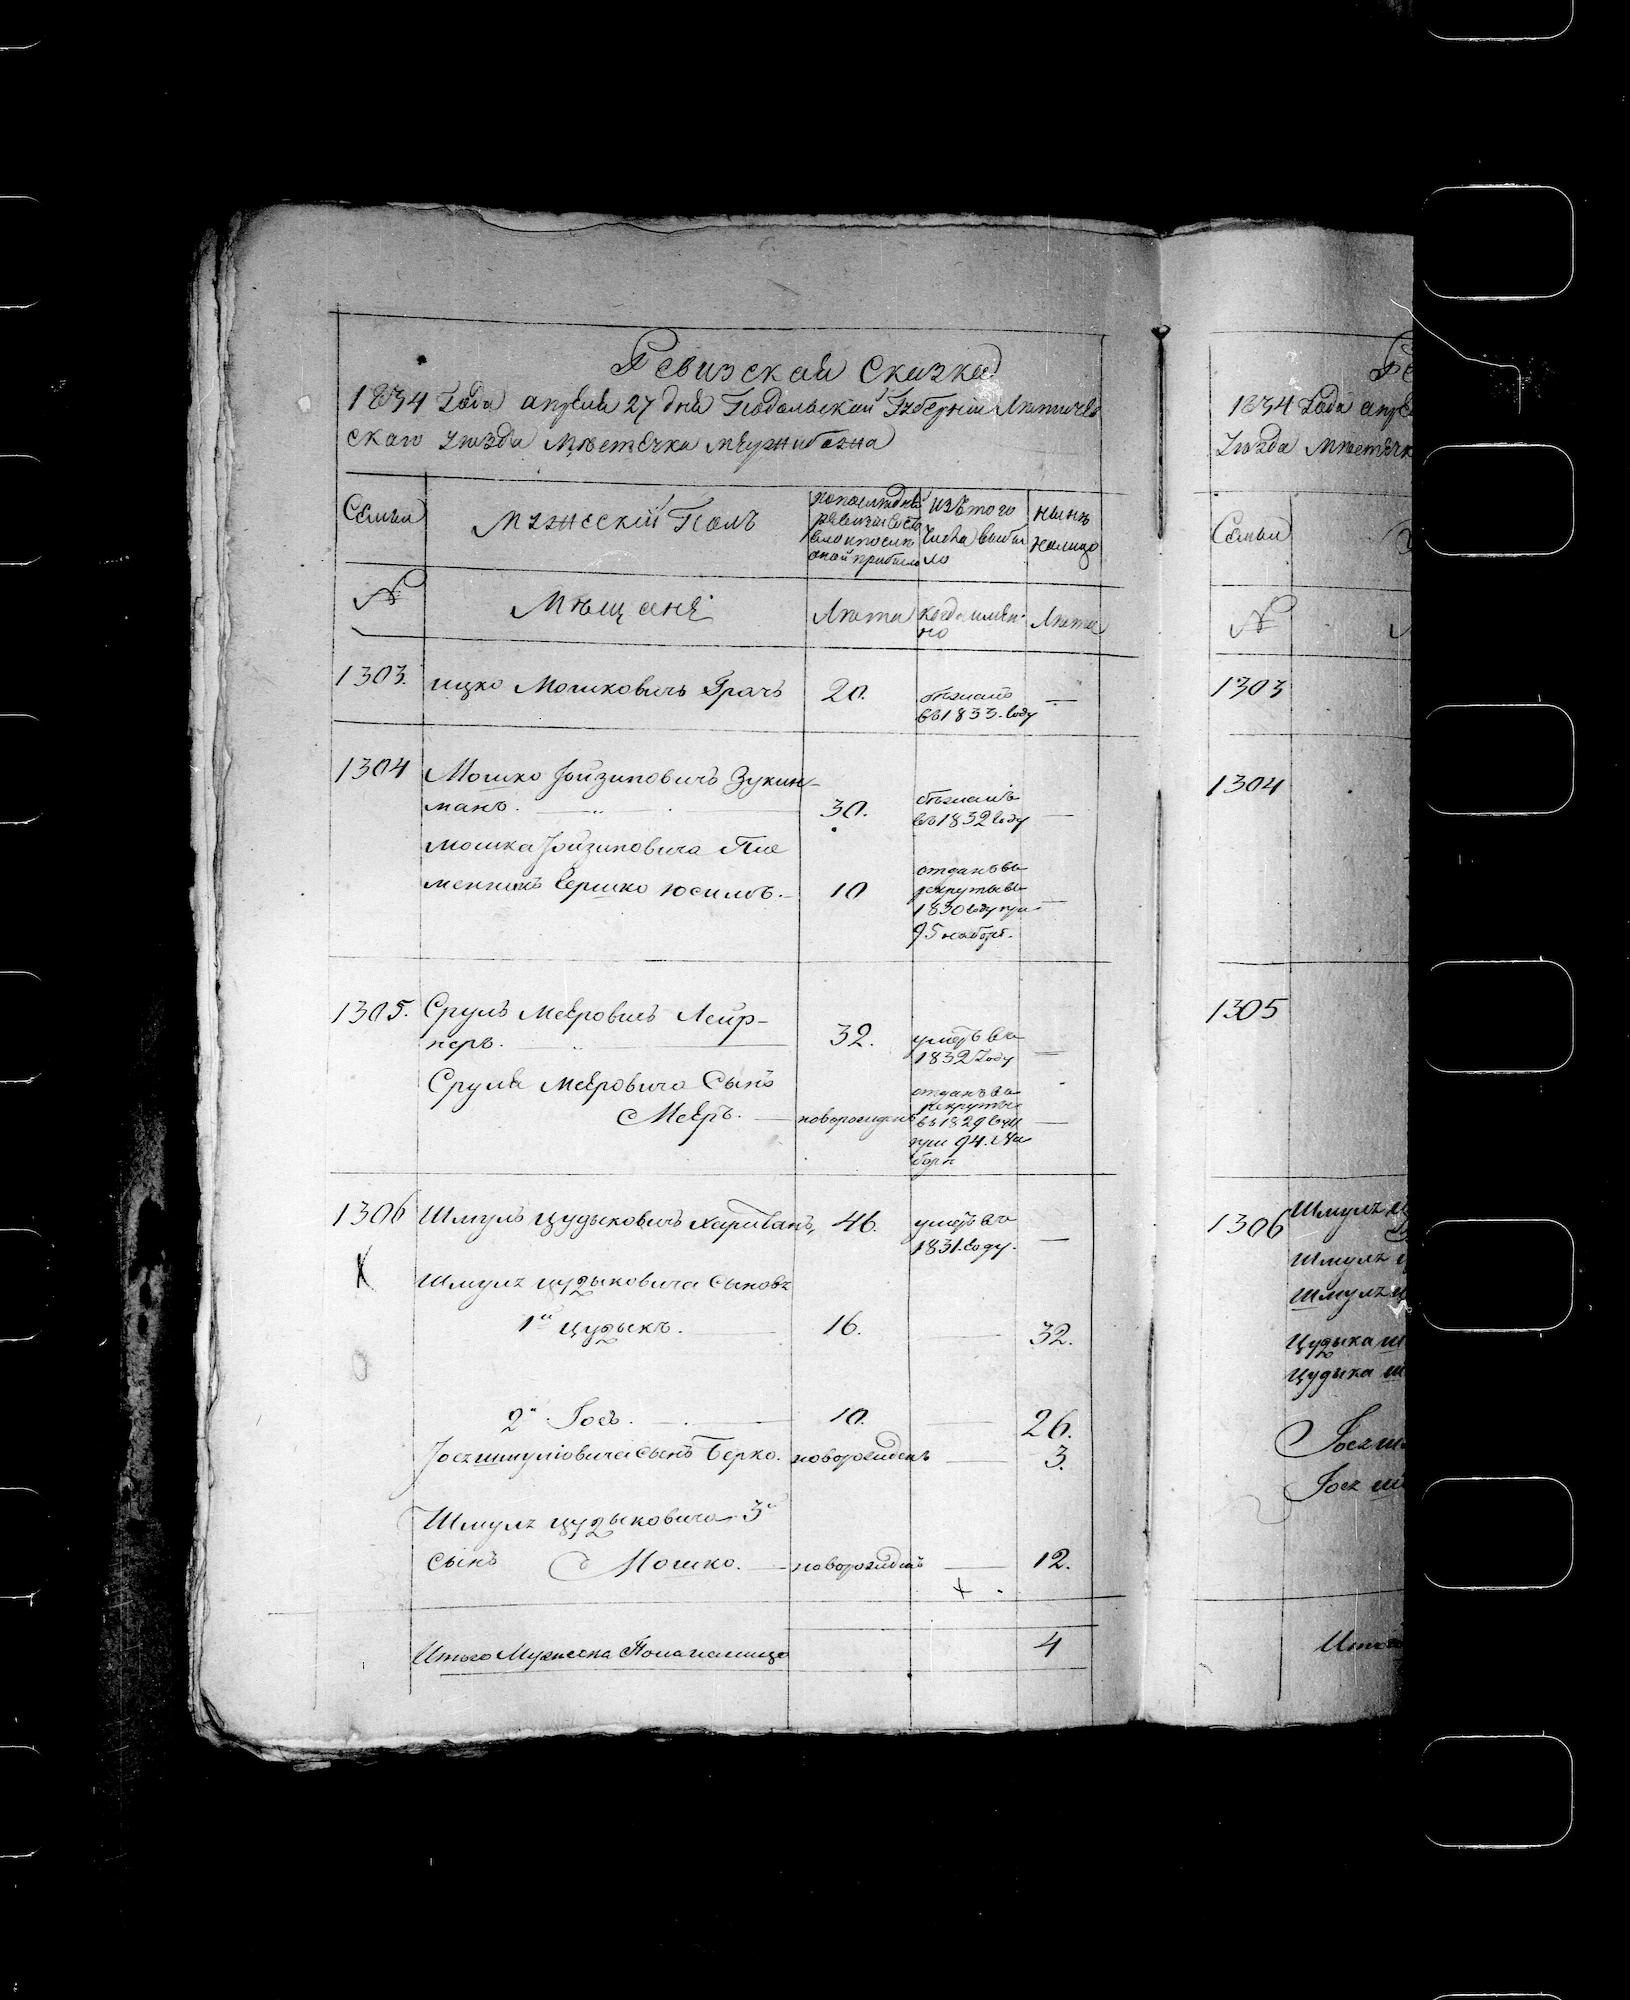 Ревизская Сказка
1834 Года апреля 27 дня Подольской Губернии Летичев
скаго уезда Местечка Меджибожа
Семьи
Мужеский Полъ
по последней
ревизии состо
яло и после
оной прибыло
изъ того
числа выбы
ло
ныне
налицо
№
Мещане
Лета
когда имен-
но
Лета
1303.
ицко Мошковичъ Грачъ
20.
бежалъ
въ 1833. году
—
1304
Мошко Іойзиповичъ Зукин-
манъ.
30.
бежалъ
въ 1832 году
—
Мошка Іойзиповича Пле
менникъ Гершко Юсимъ.
10
отданъ въ
рекруты въ
1830 году при
95 наборе.
—
1305.
Сруль Меѣровичъ Лейр-
неръ.
32.
умеръ въ
1832 Году
—
Сруля Меѣровича Сынъ
Меѣръ.
новорожденъ
отданъ въ
рекруты
въ 1829 году
при 94. на
боре
—
1306
Шмуль Цудыковичъ Хаританъ,
46.
умеръ въ
1831. году.
—
Х
Шмулъ Цудыковича сыновъ
1й Цудыкъ.
16.
—
32.
2й Іосъ.
10.
—
26.
Іосъ Шмулiовича сынъ Берко.
новорожденъ
—
3.
Шмулъ Цудыковича 3й
сынъ Мошко.
новорожденъ
—
12.
Итого Мужеска Пола налицо
4
1834 Года апре
Уезда Местечк
Семьи
№
1303
1304
1305
1306
Шмулъ
Шмулъ
Шмулъ
Цудыка
Цудыка
Іосъ
Іосъ